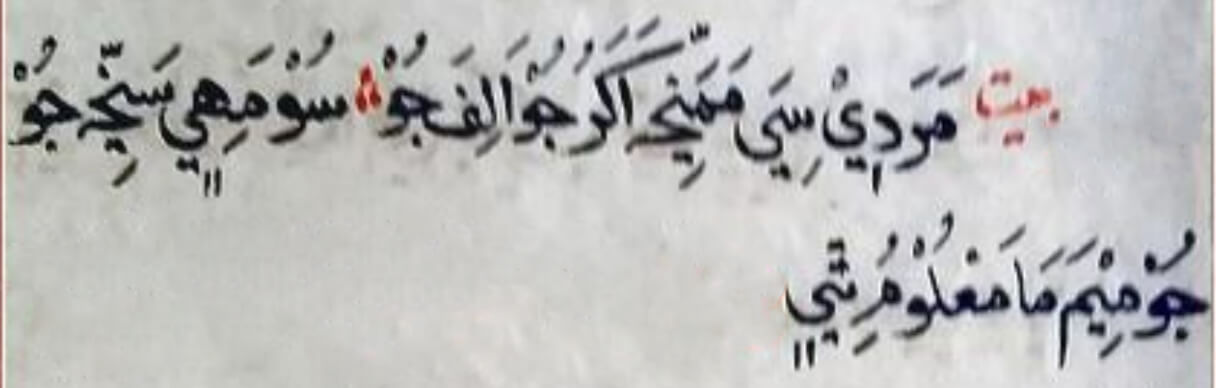 بيت مَرَدِيْ سِيَ مَمَنِّجِ اَكَرُ جُوْ اَلِفَ جُوْ؞ سُوْ مَهِيٖ سَنِّجِ جُوْ
جُوْ مِيْمَ مَا مَعْلُوْمُ تِيٖ